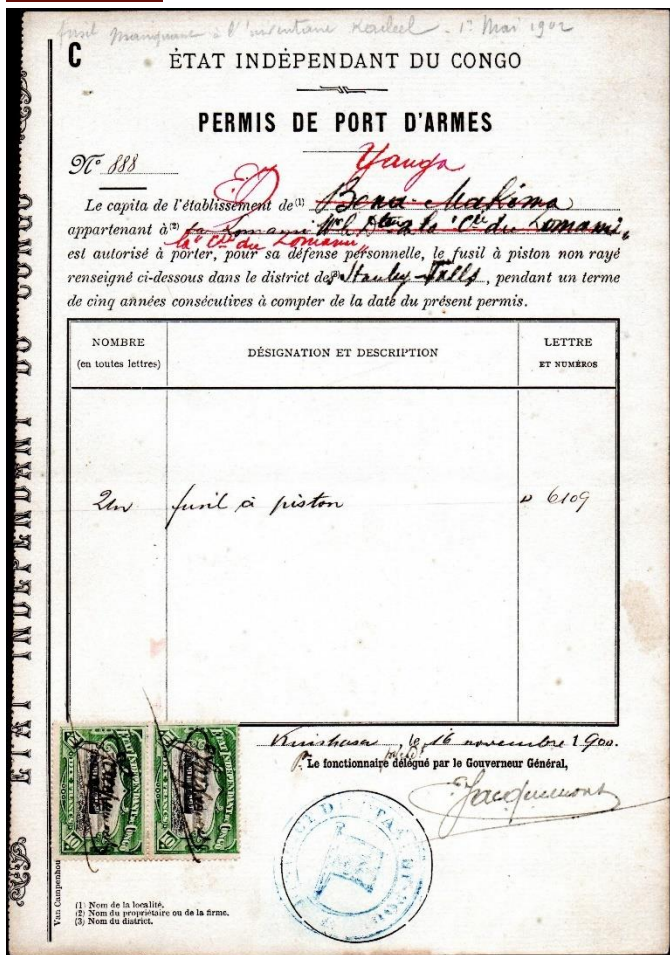 fusil manquant à l'inventaire 1er Mai 1902
C
ÉTAT INDÉPENDANT DU CONGO
PERMIS DE PORT D'ARMES
N° 888
Yanga
Le capita de l'établissement de (1) Bena-Makima
appartenant à (2) la Lomami la "Cie du Lomami"
la "Cie du Lomami"
est autorisé à porter, pour sa défense personnelle, le fusil à piston non rayé
renseigné ci-dessous dans le district de (3) Stanley-Falls, pendant un terme
de cinq années consécutives à compter de la date du présent permis.
NOMBRE
(en toutes lettres)
DÉSIGNATION ET DESCRIPTION
LETTRE
ET NUMÉROS
Un fusil à piston 6109
Kinshasa, le 16 novembre 1900.
Le fonctionnaire délégué par le Gouverneur Général,
Jacquemont
ÉTAT INDÉPENDANT DU CONGO
10 FRANCS
ÉTAT INDÉPENDANT DU CONGO
10 FRANCS
(1) Nom de la localité.
(2) Nom du propriétaire ou de la firme.
(3) Nom du district.
Van Campenhou
ÉTAT INDÉPENDANT DU CONGO